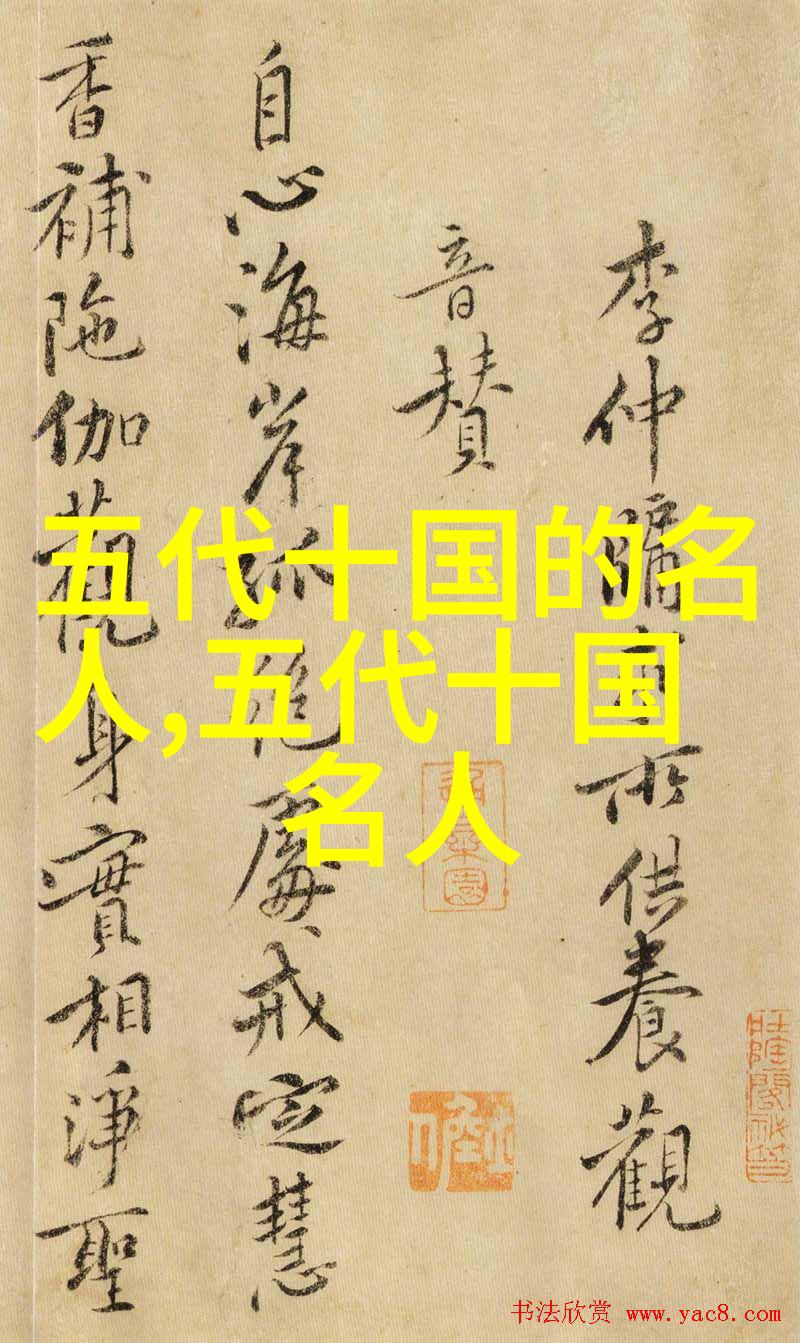 李仲牖所供養觀
音賛
自心海岸孤絶處戒定慧
香補陁伽觀身實相淨聖
五代十国的名
人,五代十国
名人
书法欣赏 www.yac8.com